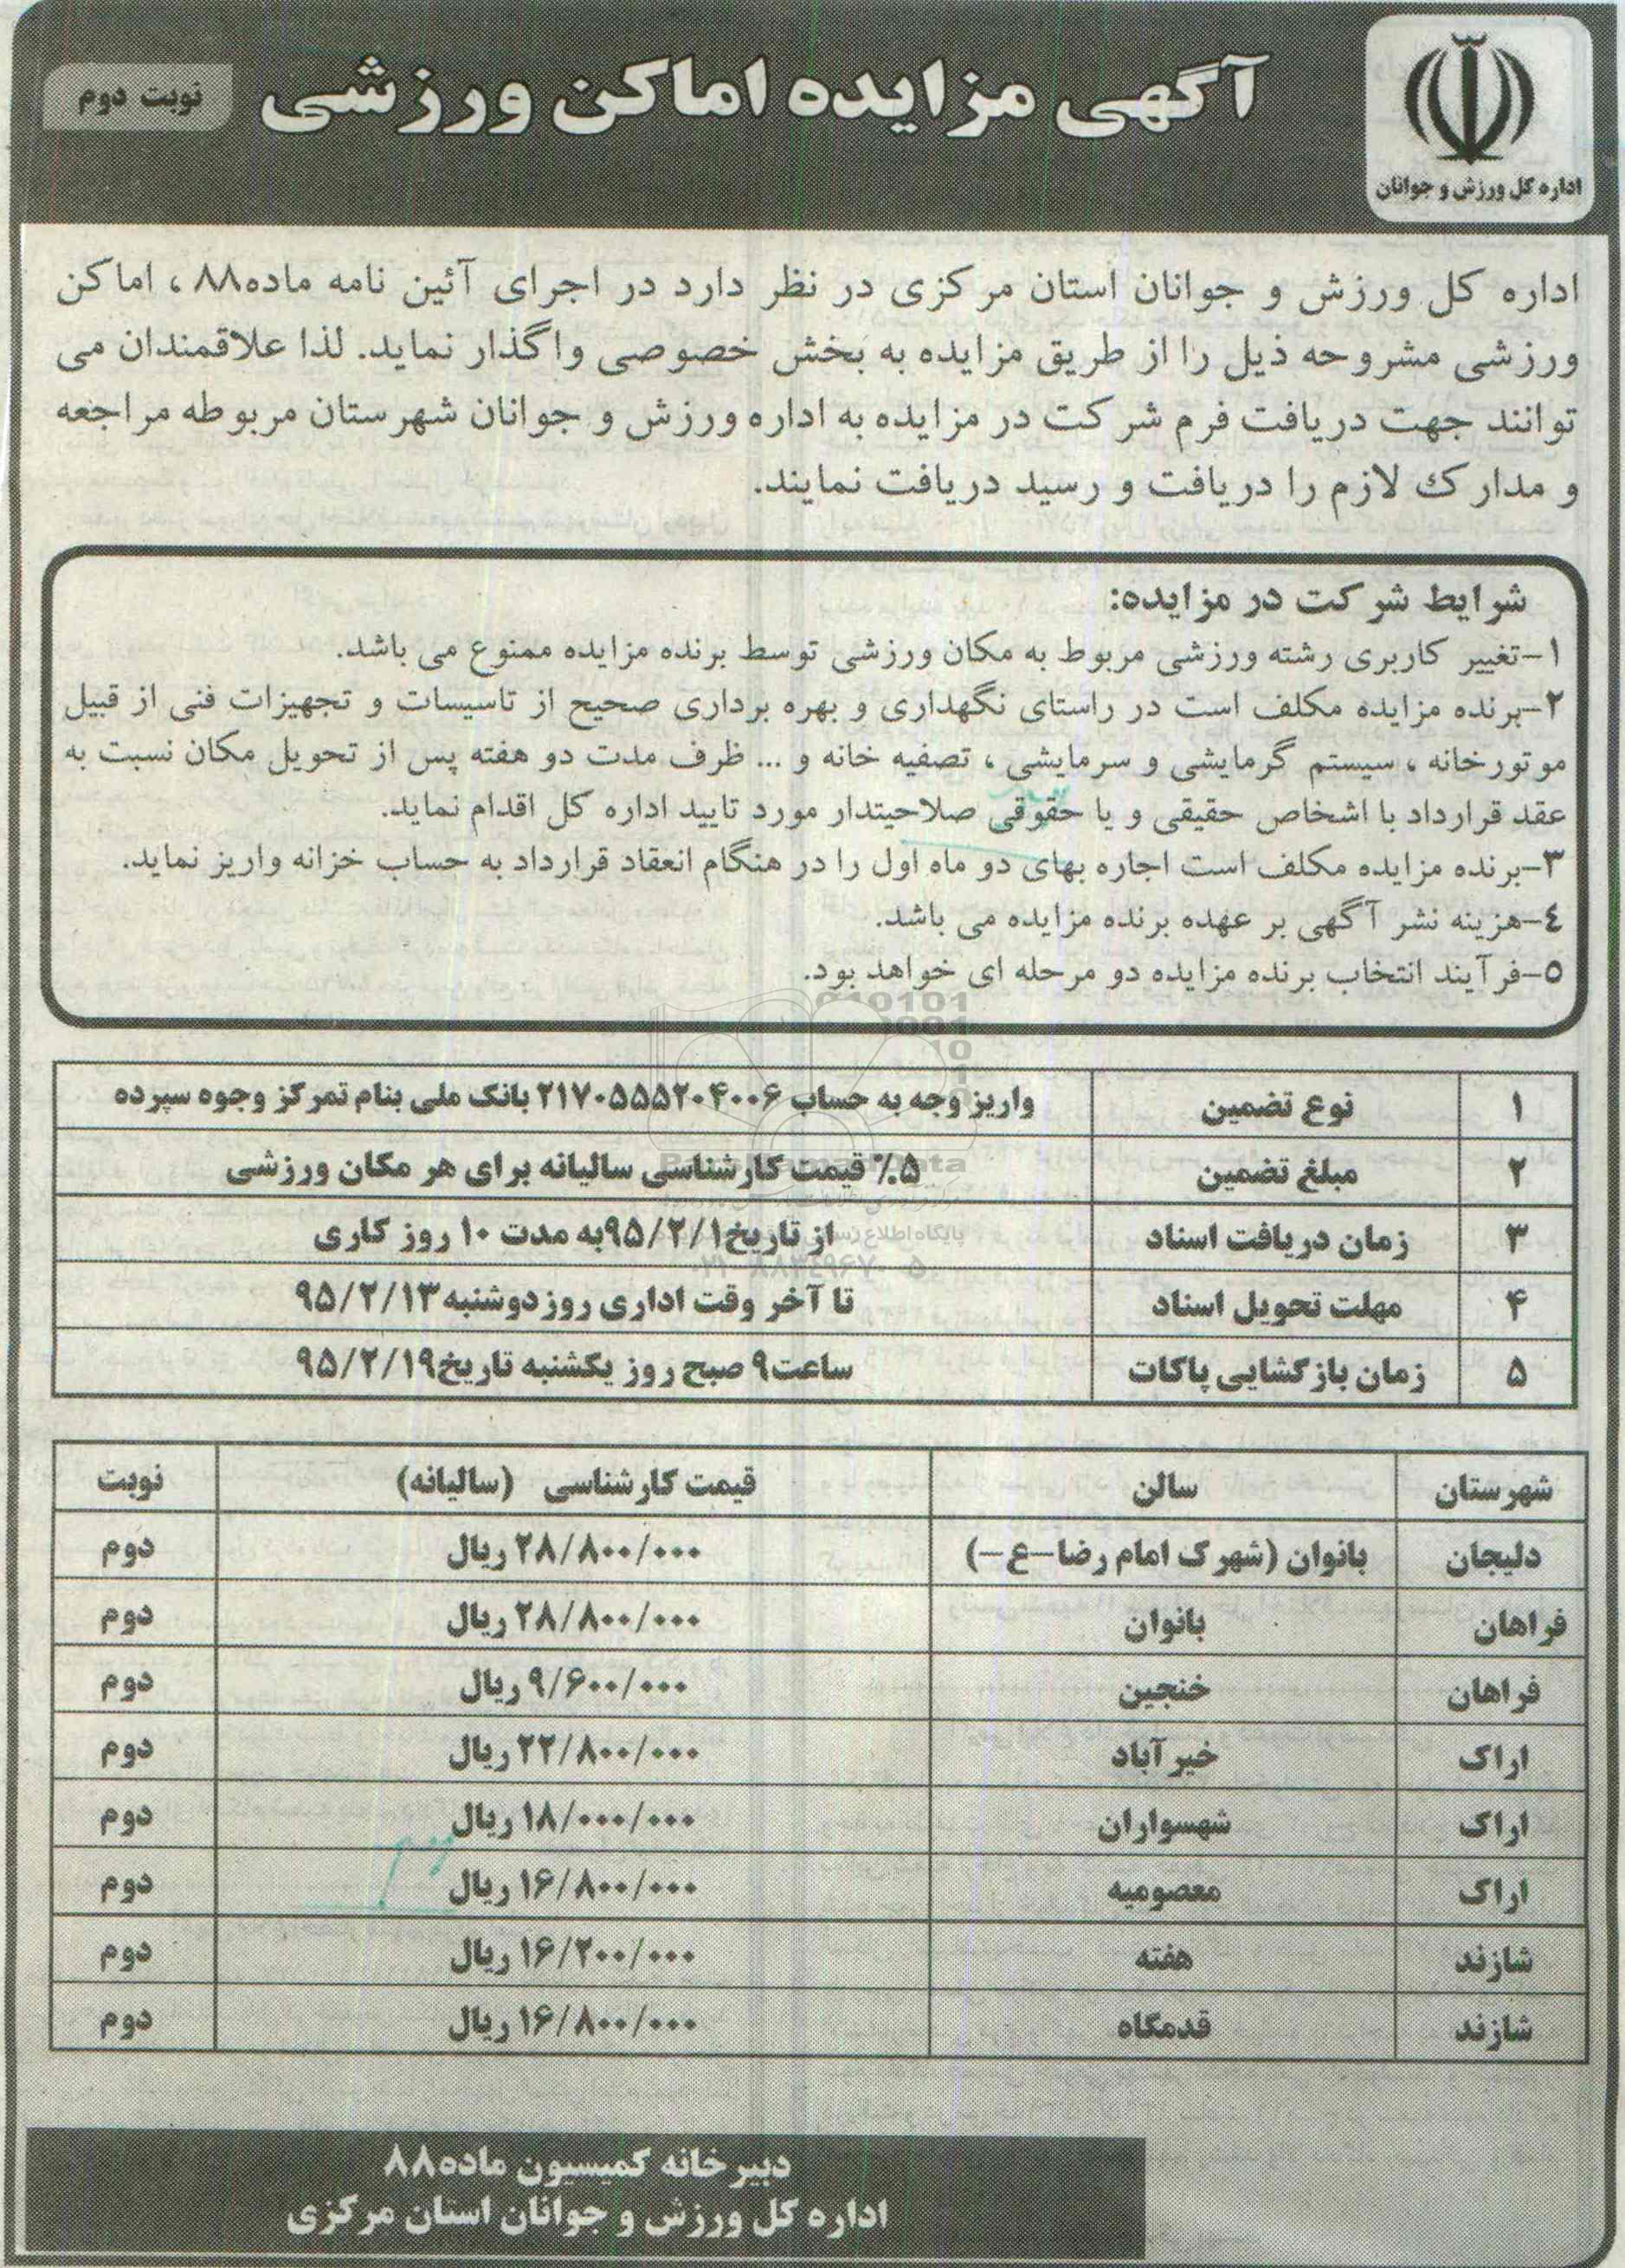 اداره کل ورزش و جوانان
آگهی مزایده اماکن ورزشی
نوبت دوم
اداره کل ورزش و جوانان استان مرکزی در نظر دارد در اجرای آئین نامه ماده۸۸ ، اماکن
ورزشی مشروحه ذیل را از طریق مزایده به بخش خصوصی واگذار نماید. لذا علاقمندان می
توانند جهت دریافت فرم شرکت در مزایده به اداره ورزش و جوانان شهرستان مربوطه مراجعه
و مدارک لازم را دریافت و رسید دریافت نمایند.
شرایط شرکت در مزایده:
۱-تغییر کاربری رشته ورزشی مربوط به مکان ورزشی توسط برنده مزایده ممنوع می باشد.
۲-برنده مزایده مکلف است در راستای نگهداری و بهره برداری صحیح از تاسیسات و تجهیزات فنی از قبیل
موتورخانه ، سیستم گرمایشی و سرمایشی ، تصفیه خانه و ... ظرف مدت دو هفته پس از تحویل مکان نسبت به
عقد قرارداد با اشخاص حقیقی و یا حقوقی صلاحیتدار مورد تایید اداره کل اقدام نماید.
۳-برنده مزایده مکلف است اجاره بهای دو ماه اول را در هنگام انعقاد قرارداد به حساب خزانه واریز نماید.
٤-هزینه نشر آگهی بر عهده برنده مزایده می باشد.
۵-فرآیند انتخاب برنده مزایده دو مرحله ای خواهد بود.
۱ نوع تضمین واریز وجه به حساب ۲۱۷۰۵۵۵۲۰۴۰۰۶ بانک ملی بنام تمرکز وجوه سپرده
۲ مبلغ تضمین ۵٪ قیمت کارشناسی سالیانه برای هر مکان ورزشی
۳ زمان دریافت اسناد از تاریخ۹۵/۲/۱به مدت ۱۰ روز کاری
۴ مهلت تحویل اسناد تا آخر وقت اداری روز دوشنبه ۹۵/۲/۱۳
۵ زمان بازگشایی پاکات ساعت۹ صبح روز یکشنبه تاریخ۹۵/۲/۱۹
شهرستان سالن قیمت کارشناسی (سالیانه) نوبت
دلیجان بانوان (شهرک امام رضا-ع-) ۲۸/۸۰۰/۰۰۰ ریال دوم
فراهان بانوان ۲۸/۸۰۰/۰۰۰ ریال دوم
فراهان خنجین ۹/۶۰۰/۰۰۰ ریال دوم
اراک خیرآباد ۲۲/۸۰۰/۰۰۰ ریال دوم
اراک شهسواران ۱۸/۰۰۰/۰۰۰ ریال دوم
اراک معصومیه ۱۶/۸۰۰/۰۰۰ ریال دوم
شازند هفته ۱۶/۲۰۰/۰۰۰ ریال دوم
شازند قدمگاه ۱۶/۸۰۰/۰۰۰ ریال دوم
دبیرخانه کمیسیون ماده۸۸
اداره کل ورزش و جوانان استان مرکزی